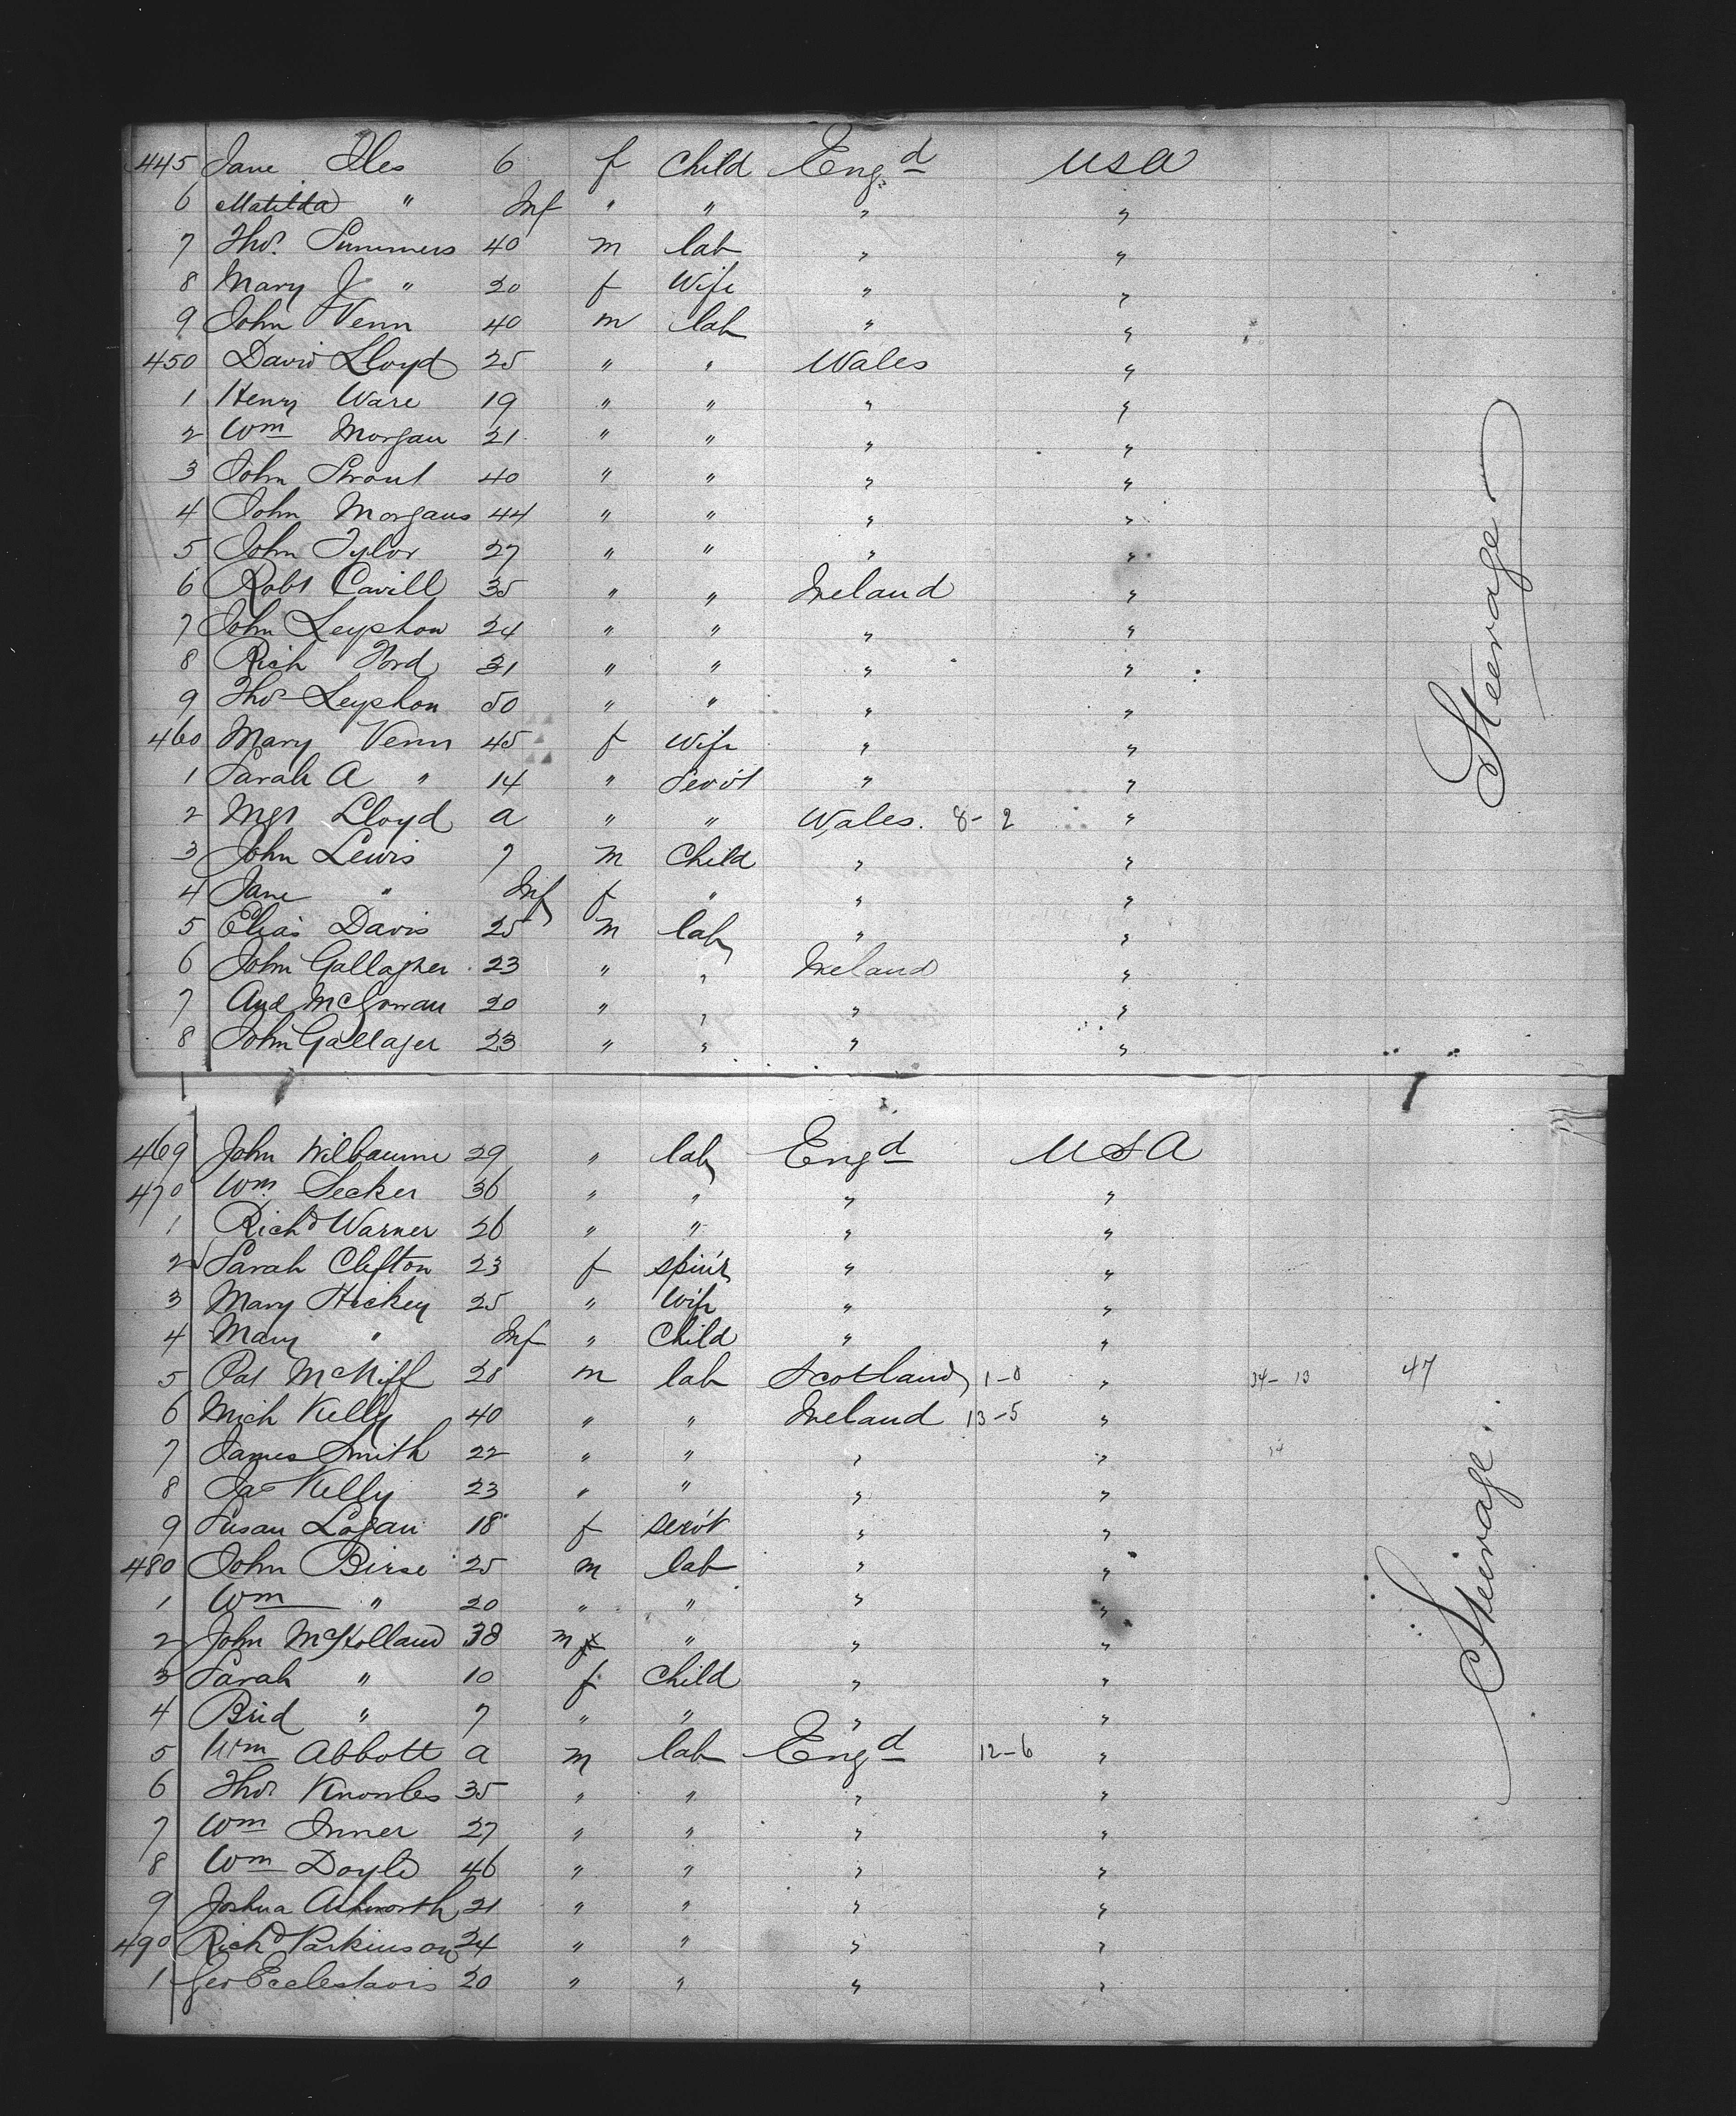 445 Jane Iles 6 f Child Eng.d USA
6 Matilda " Inf " " " "
7 Thos. Summers 40 m lab " "
8 Mary J " 20 f Wife " "
9 John Venn 40 m lab " "
450 David Lloyd 25 " " Wales "
1 Henry Ware 19 " " " "
2 Wm Morgan 21 " " " "
3 John 40 " " " "
4 John Morgans 44 " " " "
5 John Tylor 27 " " " "
6 Robt Cavill 35 " " Ireland "
7 John Leyshon 24 " " " "
8 Rich Ford 31 " " " "
9 Thos Leyshon 50 " " " "
460 Mary Venn 45 f Wife " "
1 Sarah A " 14 " Serv't " "
2 Mgt Lloyd a " " Wales. 8-2 "
3 John Lewis 7 m Child " "
4 Jane " Inf f " " "
5 Elias Davis 25 m lab " "
6 John Gallagher 23 " " Ireland "
7 McGowan 20 " " " "
8 John Gallager 23 " " " "
Steerage
469 John Wilbaume 29 " lab Engd USA
470 Wm. Secker 36 " " " "
1 Richd Warner 26 " " " "
2 Sarah Clifton 23 f spin'r " "
3 Mary Hickey 25 " Wife " "
4 Mary " Inf " Child " "
5 Pat McNiff 28 m lab Scotland 1-0 " 34-13 47
6 Mich Kelly 40 " " Ireland 13-5 "
7 James Smith 22 " " " " 34
8 Jas Kelly 23 " " " "
9 Susan Logan 18 f serv't " "
480 John Birse 25 m lab " "
1 Wm " 20 " " " "
2 John McHolland 38 m f " " "
3 Sarah " 10 f Child " "
4 Brid " 7 " " " "
5 Wm Abbott a m lab Engd 12-6 "
6 Thos Knowles 35 " " " "
7 Wm Inner 27 " " " "
8 Wm Doyle 46 " " " "
9 Joshua Ashworth 21 " " " "
490 Richd Parkinson 24 " " " "
1 Geo 20 " " " "
Steerage.